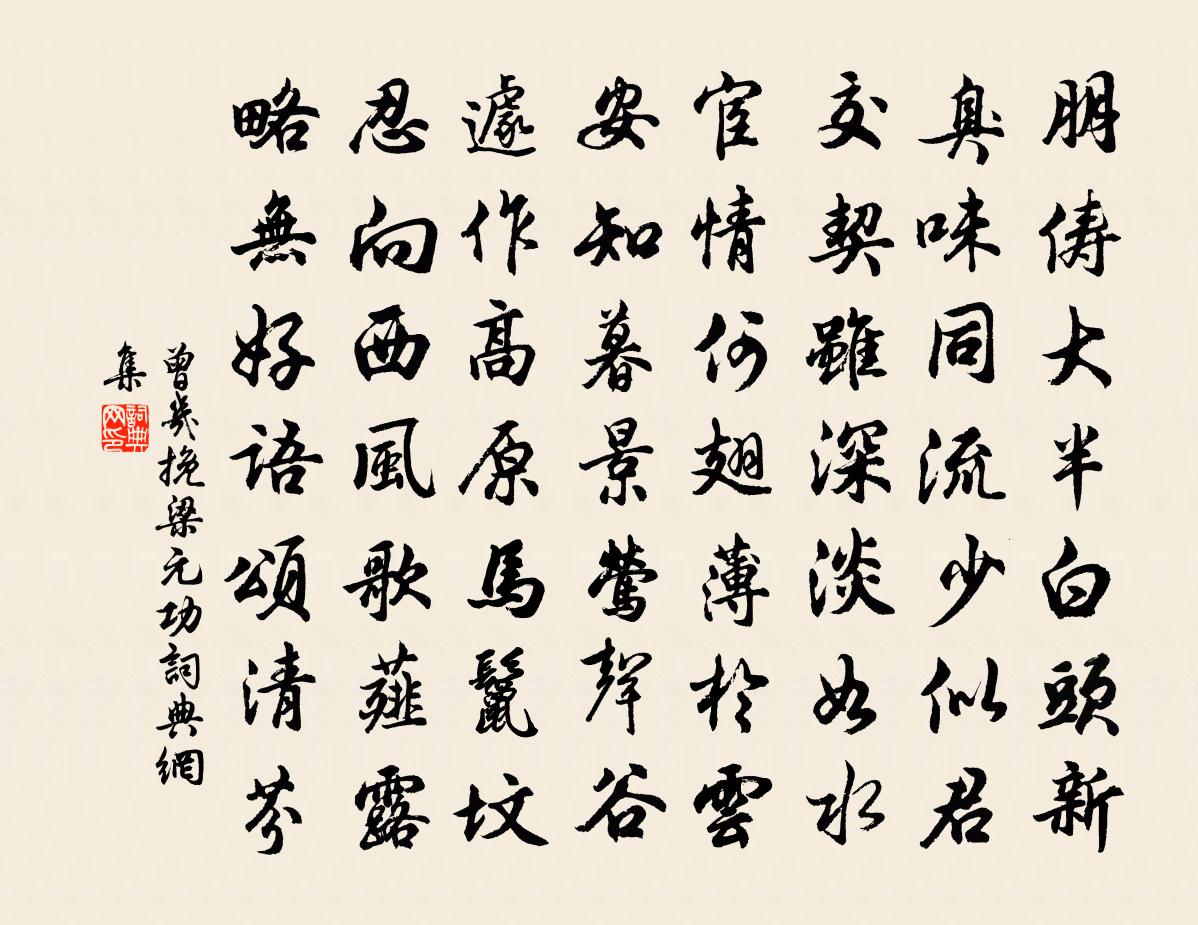 朋儔大半白頭新
臭味同流少似君
交契雖深淡如水
宦情何翅薄於雲
安知暮景鶯聲谷
遽作高原馬鬣墳
忍向西風歌薤露
略無好語頌清芬
曾幾挽梁元功詞典網
集
詞典网印